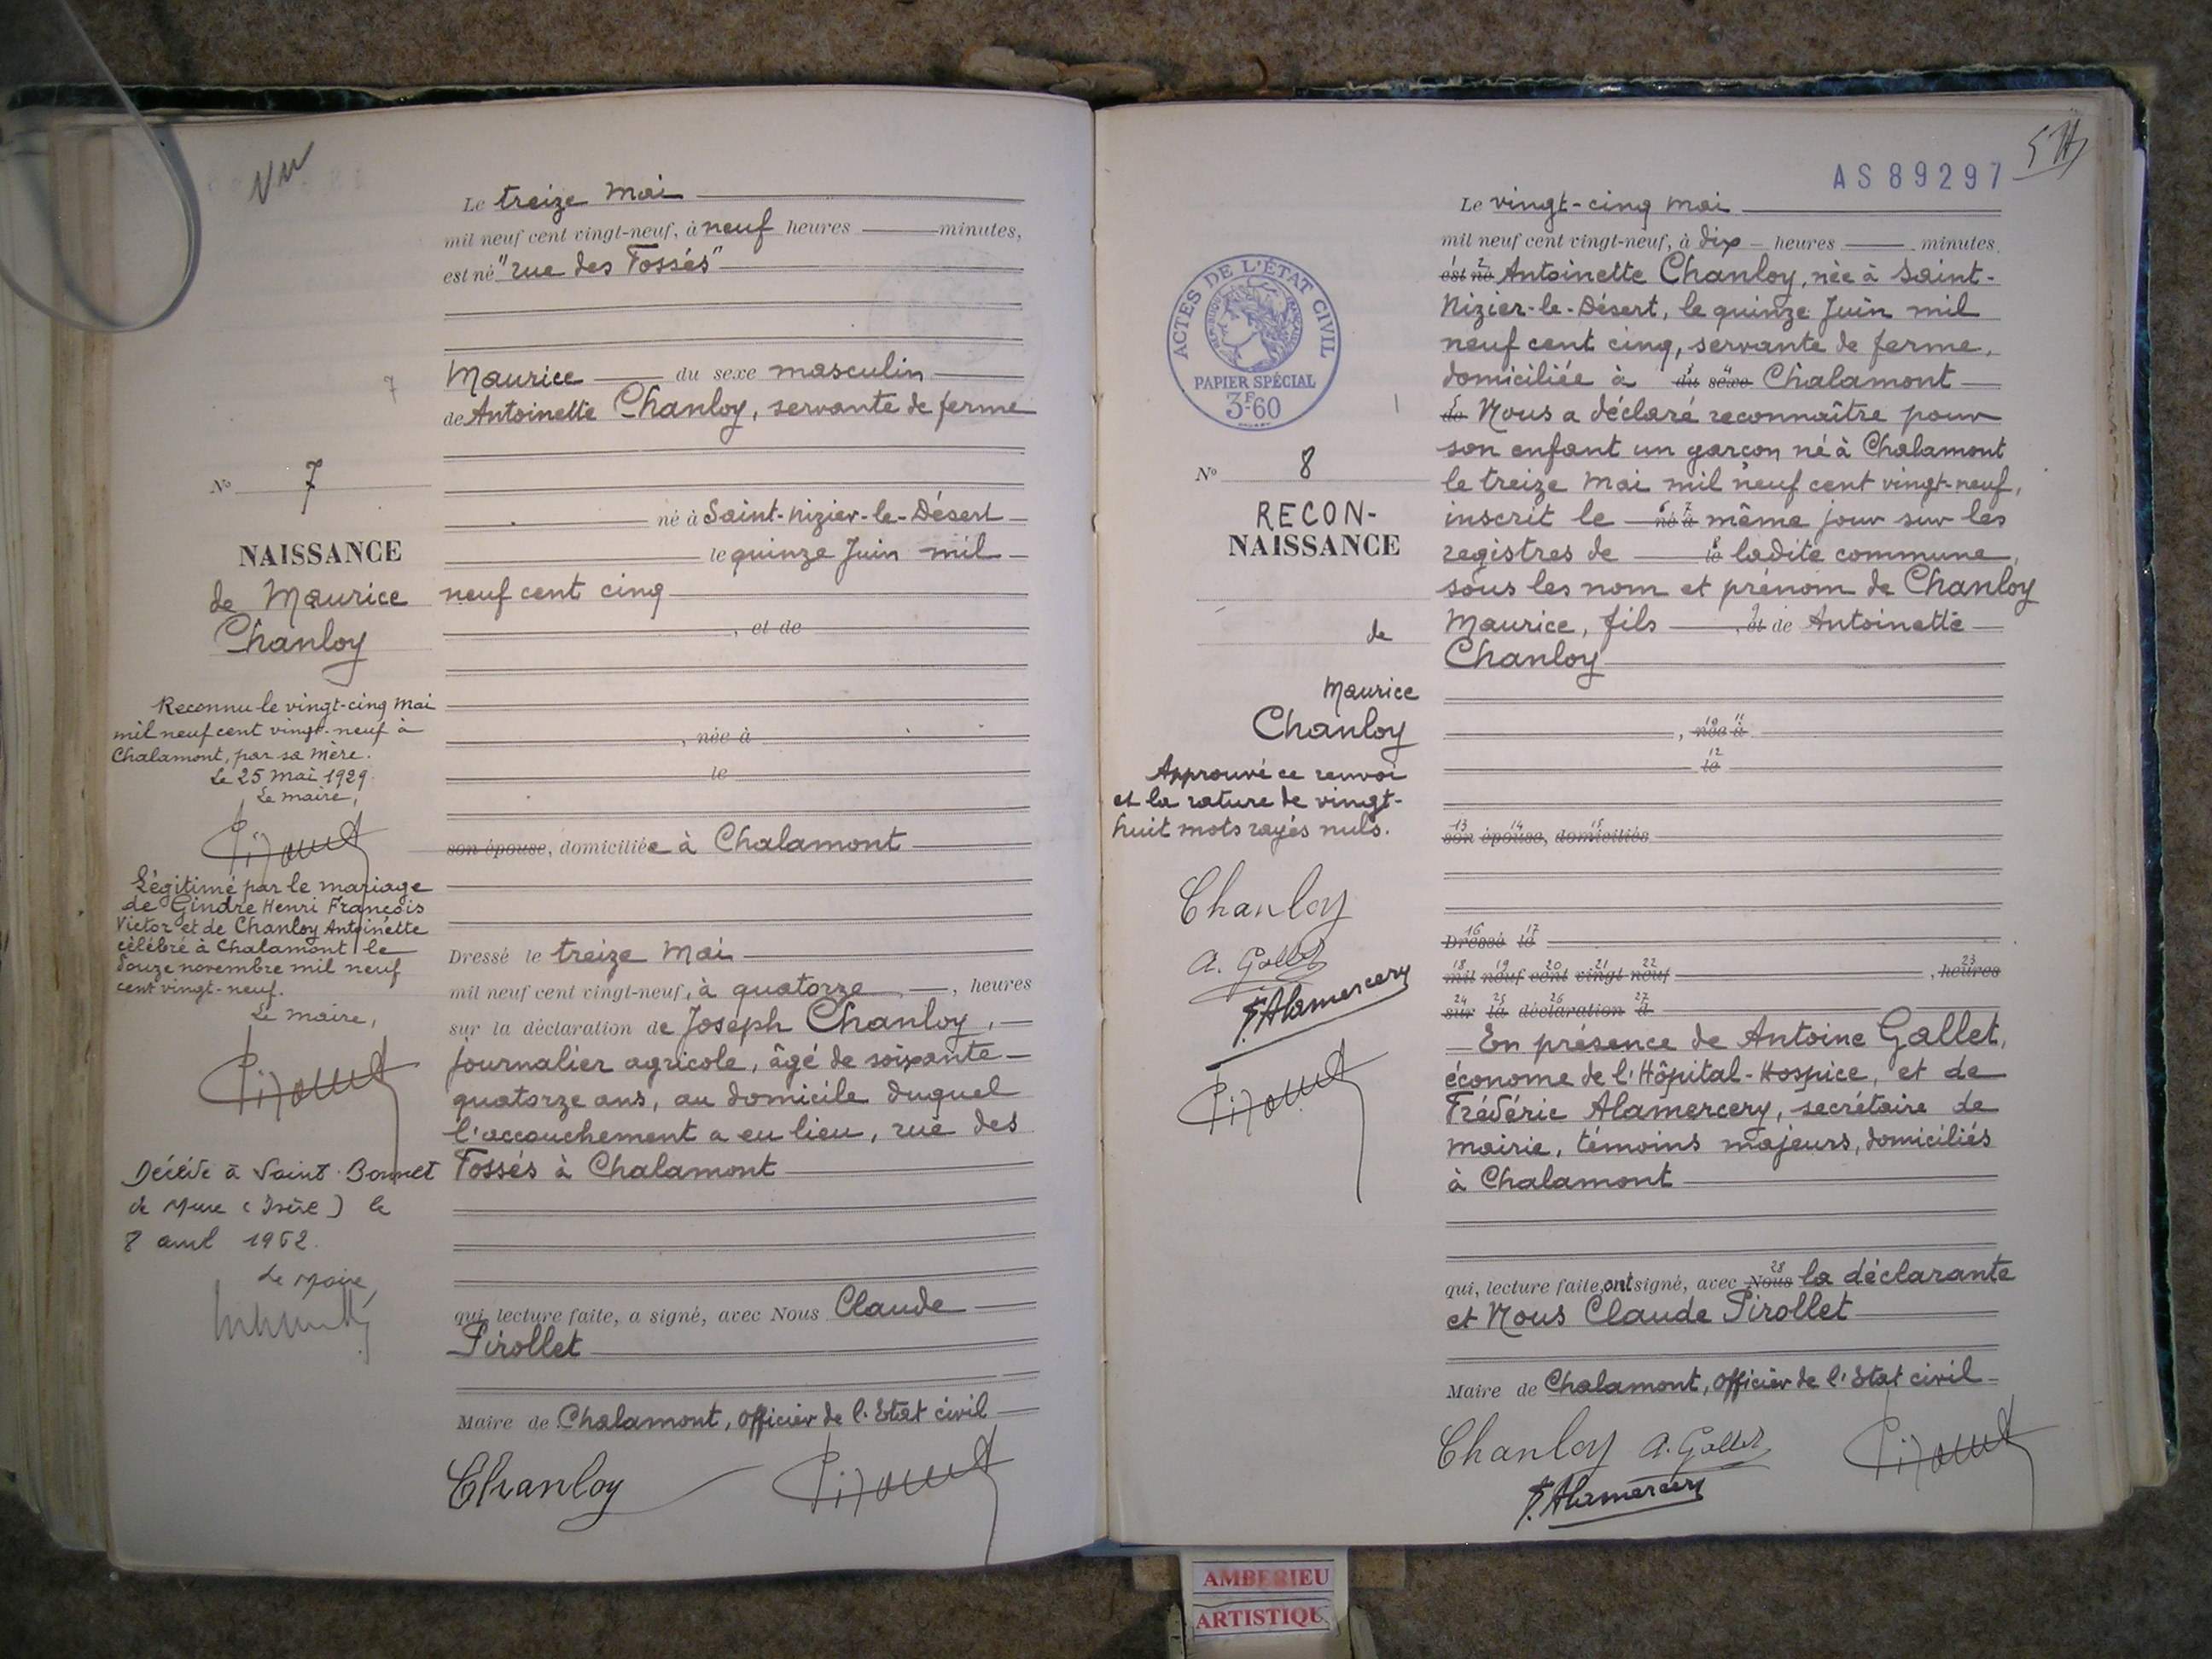 Vu
Le treize Mai
mil neuf cent vingt-neuf, à neuf heures minutes,
est né "rue des Fossés"
Maurice du sexe masculin
7
de Antoinette Chanloy, servante de ferme
N° 7
né à Saint-Nizier-le-Désert
NAISSANCE
le quinze Juin mil
de Maurice
neuf cent cinq
Chanloy
, et de
Reconnu le vingt-cinq Mai
mil neuf cent vingt-neuf à
Chalamont, par sa mère.
Le 25 Mai 1929.
Le Maire,
, née à
le
son épouse, domiciliée à Chalamont
Légitimé par le mariage
de Gindre Henri François
Victor et de Chanloy Antoinette
célébré à Chalamont le
douze novembre mil neuf
cent vingt-neuf.
Le Maire,
Dressé le treize Mai
mil neuf cent vingt-neuf, à quatorze, heures
sur la déclaration de Joseph Chanloy,
journalier agricole, âgé de soixante-
quatorze ans, au domicile duquel
l'accouchement a eu lieu, rue des
Fossés à Chalamont
Décédé à Saint-Bonnet
de Mure (Isère) le
8 avril
Le Maire,
qui, lecture faite, a signé, avec Nous Claude
Pirollet
Maire de Chalamont, officier de l'Etat civil
Chanloy
AS 89297
Le vingt-cinq Mai
mil neuf cent vingt-neuf, à dix heures minutes
1 2
est né Antoinette Chanloy, née à Saint-
Nizier-le-Désert, le quinze Juin mil
neuf cent cinq, servante de ferme,
3 4
domiciliée à du sexe Chalamont
5
de Nous a déclaré reconnaître pour
son enfant un garçon né à Chalamont
le treize Mai mil neuf cent vingt-neuf,
6 7
inscrit le né à même jour sur les
8
registres de le ladite commune,
sous les nom et prénom de Chanloy
9
Maurice, fils , et de Antoinette
Chanloy
10 11
, née à
12
le
13 14 15
son épouse, domiciliés
16 17
Dressé le
18 19 20 21 22 23
mil neuf cent vingt neuf , heures
24 25 26 27
sur la déclaration d
En présence de Antoine Gallet,
économe de l'Hôpital-Hospice, et de
Frédéric Alamercery, secrétaire de
mairie, témoins majeurs, domiciliés
à Chalamont
28
qui, lecture faite, ont signé, avec Nous la déclarante
et Nous Claude Pirollet
Maire de Chalamont, officier de l'Etat civil
Chanloy A. Gallet
F. Alamercery
ACTES DE L'ÉTAT CIVIL
PAPIER SPÉCIAL
3F60
N° 8
RECON-
NAISSANCE
de
Maurice
Chanloy
Approuvé ce renvoi
et la rature de vingt-
huit mots rayés nuls.
Chanloy
A. Gallet
F. Alamercery
AMBERIEU
ARTISTIQU